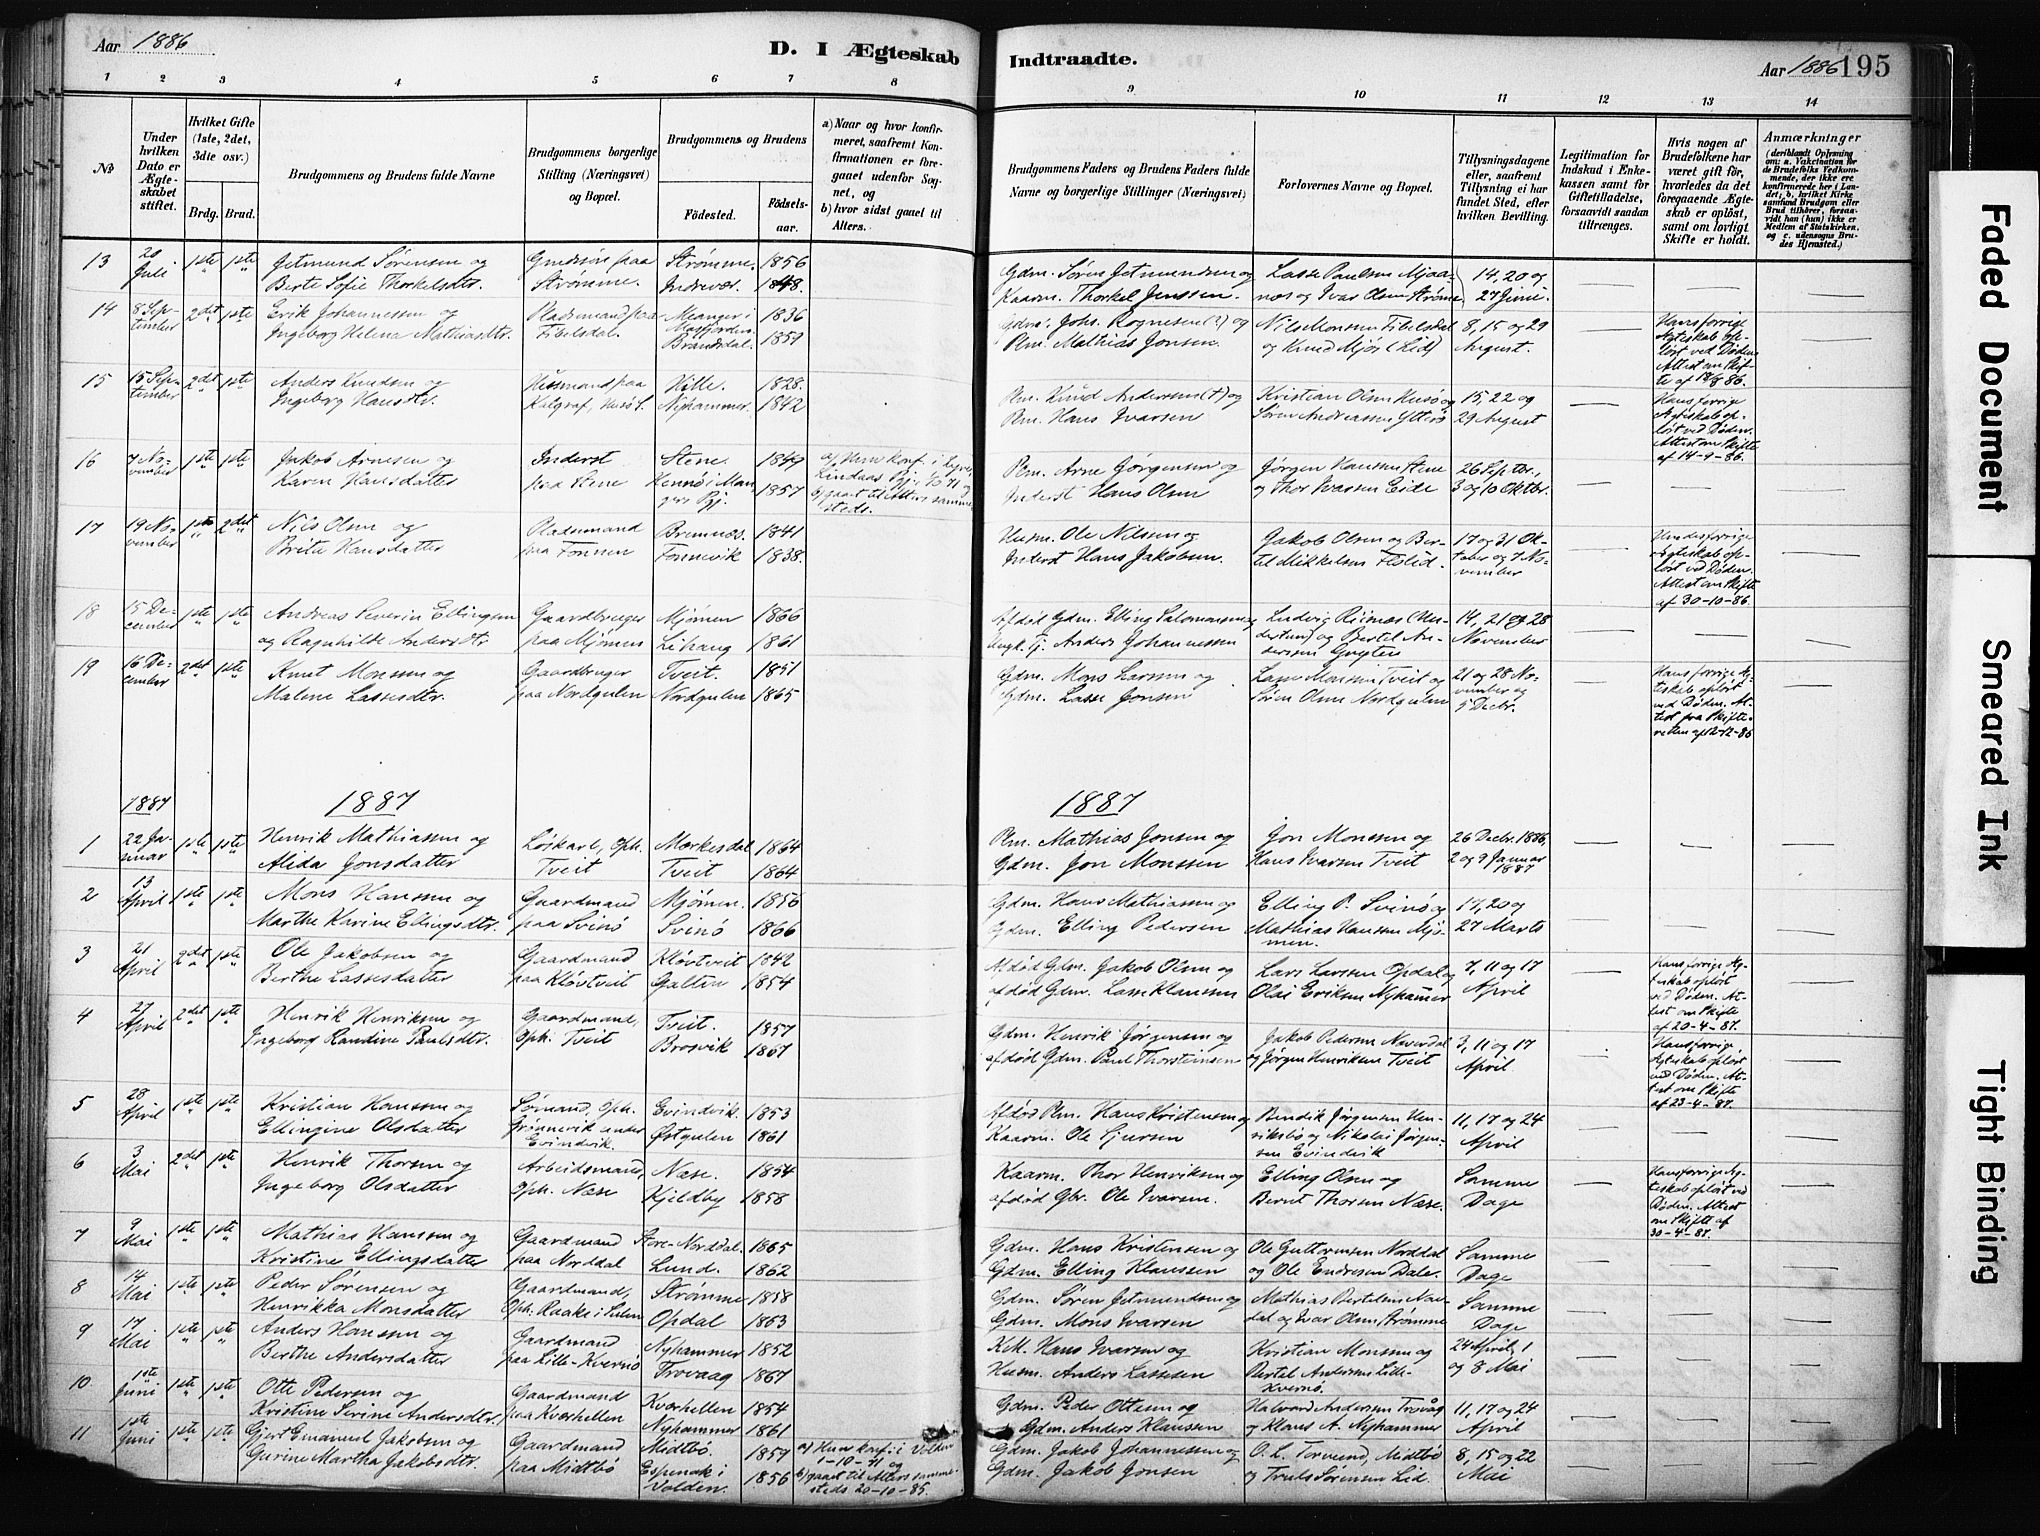 Aar 1886
D. I Ægteskab
Indtraadte.
Aar 1886
195
1 2 3 4 5 6 7 8
9 10 11 12 13 14
No
Under hvilken Dato er Ægteskabet stiftet.
Hvilket Gifte (1ste, 2det, 3die osv.)
Brdg. Brud.
Brudgommens og Brudens fulde Navne
Brudgommens borgerlige Stilling (Næringsvei) og Bopæl.
Brudgommens og Brudens
Födested.
Födselsaar.
a) Naar og hvor konfirmeret, saafremt Konfirmationen er foregaaet udenfor Sognet, og
b) hvor sidst gaaet til Alters.
Brudgommens Faders og Brudens Faders fulde Navne og borgerlige Stillinger (Næringsvei)
Forlovernes Navne og Bopæl.
Tillysningsdagene eller, saafremt Tillysning ei har fundet Sted, efter hvilken Bevilling.
Legitimation for Indskud i Enkekassen samt for Giftetilladelse, forsaavidt saadan tiltrænges.
Hvis nogen af Brudefolkene har været gift för, hvorledes da det foregaaende Ægteskab er oplöst, samt om lovligt Skifte er holdt.
Anmærkninger
(deriblandt Oplysning om: a. Vakcination for de Brudefolks Vedkommende, der ikke ere konfirmerede her i Landet; b. hvilket Kirkesamfund Brudgom eller Brud tilhörer, forsaavidt han (hun) ikke er Medlem af Statskirken, og c. udensogns Brudes Hjemsted.)
13 20 Juli 1ste 1ste Jetmund Sørensen og Gmdssøn paa Strømme. 1856
Berte Sofie Thorkelsdtr. Strømme. Indrevær. 1848.
Gdm. Søren Jetmundsen og Lasse Paulsen Mjaa- 14, 20 og
Kaarm. Thorkel Jenssen. nes og Ivar Olsen Strøme 27 Juni.
14 8 September 2det 1ste Erik Johannessen og Pladsmand paa 1836
Ingeborg Helene Mathiasdtr. Tibelsdal. Brandsdal. 1859
Gdm. Johs. Rognesen (?) og Nils Monsen Tibelsdal 8, 15 og 29
Plm. Mathias Jonsen. og Knud Mjør (Lid) August.
Hans forrige Ægteskab opløst ved Døden. Attest om Skifte af 18/8 86.
15 15 September 2det 1ste Anders Knudsen og Husmand paa Hille. 1828.
Ingeborg Hansdtr. Nyhammer. 1842
Plm. Knud Andersen (†) og Kristian Olsen Husø og 15, 22 og
Plm. Hans Ivarsen. Søren Andreassen Ytterø 29 August
Hans forrige Ægteskab opløst ved Døden. Attest om Skifte af 14-9-86.
16 7 November 1ste 1ste Jakob Arnesen og Inderst Stene. 1849
Karen Hansdatter paa Stene Hennø i Mangers Pgj. 1857
Plm. Arne Jørgensen og Jørgen Hanssen Stene 26 Septbr.,
Inderst Hans Olsen og Thor Ivarsen Eide 3 og 10 Oktbr.
17 19 November 1ste 2det Nils Olsen og Pladsmand Bremnes. 1841
Brita Hansdatter paa Fonnen Fonnevik 1838.
Husm. Ole Nilssen og Jakob Olsen og Ber- 17 og 31 Ok-
Inderst Hans Jakobsen. til Mikkelsen Flolid. tober og 7 November
Hendes forrige Ægteskab opløst ved Døden. Attest om Skifte af 30-10-86.
18 15 December 1ste 1ste Andreas Severin Ellingsen Gaardbruger Mjømen 1866
og Ragnhilde Andersdtr. paa Mjømen Lihaug 1861
Afdød Gdm. Elling Salomonsen og Ludvig Risnes 14, 21 og 28
Ungk. Tj. Anders Johannessen og Bertel Andersen November
19 16 December 2det 1ste Knut Monsen og Gaardbruger Tveit. 1851
Malene Lassesdtr. paa Nordgulen Nordgulen 1865
Gdm. Mons Larsen og Lasse Monsen Tveit og 21 og 28 No-
Gdm. Lasse Jonsen Søren Olsen Nordgulen vember og 5 Decbr.
Hans forrige Ægteskab opløst ved Døden. Attest fra Skifteretten af 12-12-86
1887 1887 1887
1 22 Januar 1ste 1ste Henrik Mathiassen og Løskarl, Oph. Mærkesdal 1864
Alida Jonsdatter Tveit Tveit 1864
Plm. Mathias Jonsen og Jon Monssen og 26 Decbr. 1886,
Gdm. Jon Monssen Hans Ivarsen Tveit 2 og 9 Januar 1887
2 13 April 1ste 1ste Mons Hanssen og Gaardmand Mjømen. 1856
Marthe Karine Ellingsdtr. paa Svinø Svinø 1866
Gdm. Hans Mathiassen og Elling P. Svinø og 17, 20 og
Gdm. Elling Pedersen Mathias Hansen Mjømen. 27 Marts
3 21 April 2det 1ste Ole Jakobsen og Gaardmand Kløvtveit 1842
Berthe Lassesdatter paa Kløvtveit Galten 1854
Afdød Gdm. Jakob Olsen og Lars Larssen Opdal og 7, 11 og 17
afdød Gdm. Lasse Klaussen Olai Eriksen Nyhamer April
Hans forrige Ægteskab opløst ved Døden. Attest om Skifte af 20-4-87.
4 27 April 2det 1ste Henrik Henriksen og Gaardmand, Tveit. 1857
Ingeborg Randine Paulsdtr. Oph. Tveit Brosvik 1867
Gdm. Henrik Jørgensen og Jakob Pedersen Naverdal 3, 11 og 17
afdød Gdm. Paul Thorsteinsen og Jørgen Henriksen Tveit April
Hans forrige Ægteskab opløst ved Døden. Attest om Skifte af 23-4-87.
5 28 April 1ste 1ste Kristian Hanssen og Sømand, Oph. Evindvik. 1853
Ellingine Olsdatter Grønnevik under Evindvik. Østgulen 1861
Afdød Plm. Hans Kristensen og Bendik Jørgensen Hen- 11, 17 og 24
Kaarm. Ole Sjursen riksbø og Nikolai Jørgensen Evindvik April
6 3 Mai 2det 1ste Henrik Thorsen og Arbeidsmand, Næse. 1854
Ingeborg Olsdatter Oph. Næse Kjeldby 1858
Kaarm. Thor Henriksen og Elling Olsen og Samme
afdød Gbr. Ole Ivarsen. Bernt Thorsen Næse. Dage
Hans forrige Ægteskab opløst ved Døden. Attest om Skifte af 30-4-87.
7 9 Mai 1ste 1ste Mathias Hanssen og Gaardmand Store-Norddal. 1865
Kristine Ellingsdatter paa Norddal Lund. 1862
Gdm. Hans Kristensen og Ole Guttormsen Norddal Samme
Gdm. Elling Klaussen og Ole Endresen Dale. Dage
8 14 Mai 1ste 1ste Peder Sørensen og Gaardmand, Strømme 1858
Henrikka Monsdatter Oph. Raake i Sulen Opdal 1863
Gdm. Søren Jetmundsen og Mathias Bertelsen Nav- Samme
Gdm. Mons Ivarsen dal og Ivar Olsen Strømme Dage
9 17 Mai 1ste 1ste Anders Hanssen og Gaardmand Nyhammer 1852
Berthe Andersdatter paa Lille-Kvernø Trovaag 1867
K.M. Hans Ivarsen og Kristian Monsen og 24 April, 1
Husm. Anders Lassesen Bertel Andersen Lille-Kvernø. og 8 Mai
10 1ste Juni 1ste 1ste Otte Pedersen og Gaardmand Kværhellen 1854
Kristine Serine Andersdtr. paa Kværhellen Nyhammer 1861
Gdm. Peder Ottesen og Halvard Andersen Trovåg 11, 17 og 24
Gdm. Anders Klaussen og Klaus A. Nyhammer April
11 1ste Juni 1ste 1ste Gjert Emanuel Jakobsen og Gaardmand Midtbø. 1857
Gurine Martha Jakobsdtr. paa Midtbø Espenak i Volden. 1856
a) Hun konf. i Volden 1-10-71 og
b) gaaet til Alters sammesteds 20-10-85.
Gdm. Jakob Johannessen og O. L. Torvund, Midtbø 8, 15 og 22
Gdm. Jakob Jonsen og Truls Sørensen Lid. Mai
Faded Document
Smeared Ink
Tight Binding